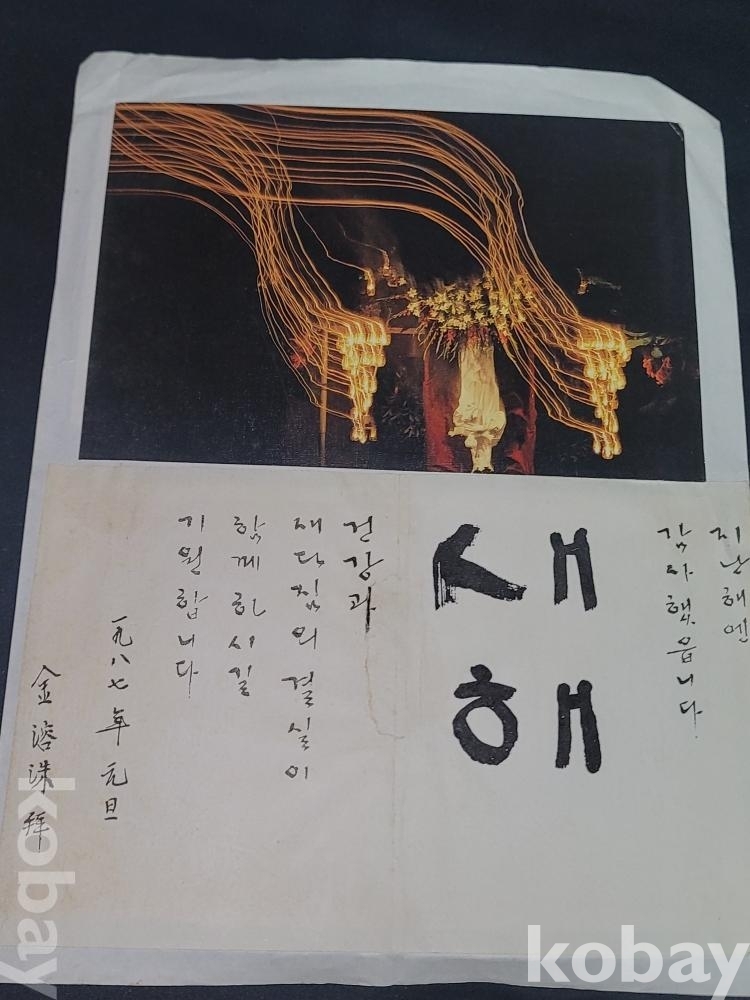 지난해엔
감사했읍니다
새해
건강과
새다짐의 결실이
함께하시길
기원합니다
一九八七年 元旦
金溶洙 拜
kobay
kobay